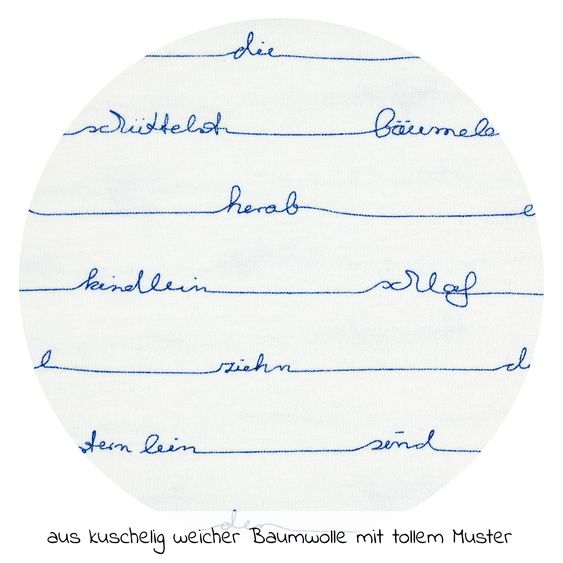 die
schüttelst bäumele
herab e
kindlein schlaf
l ziehn d
ternlein sind
den
aus kuschelig weicher Baumwolle mit tollem Muster